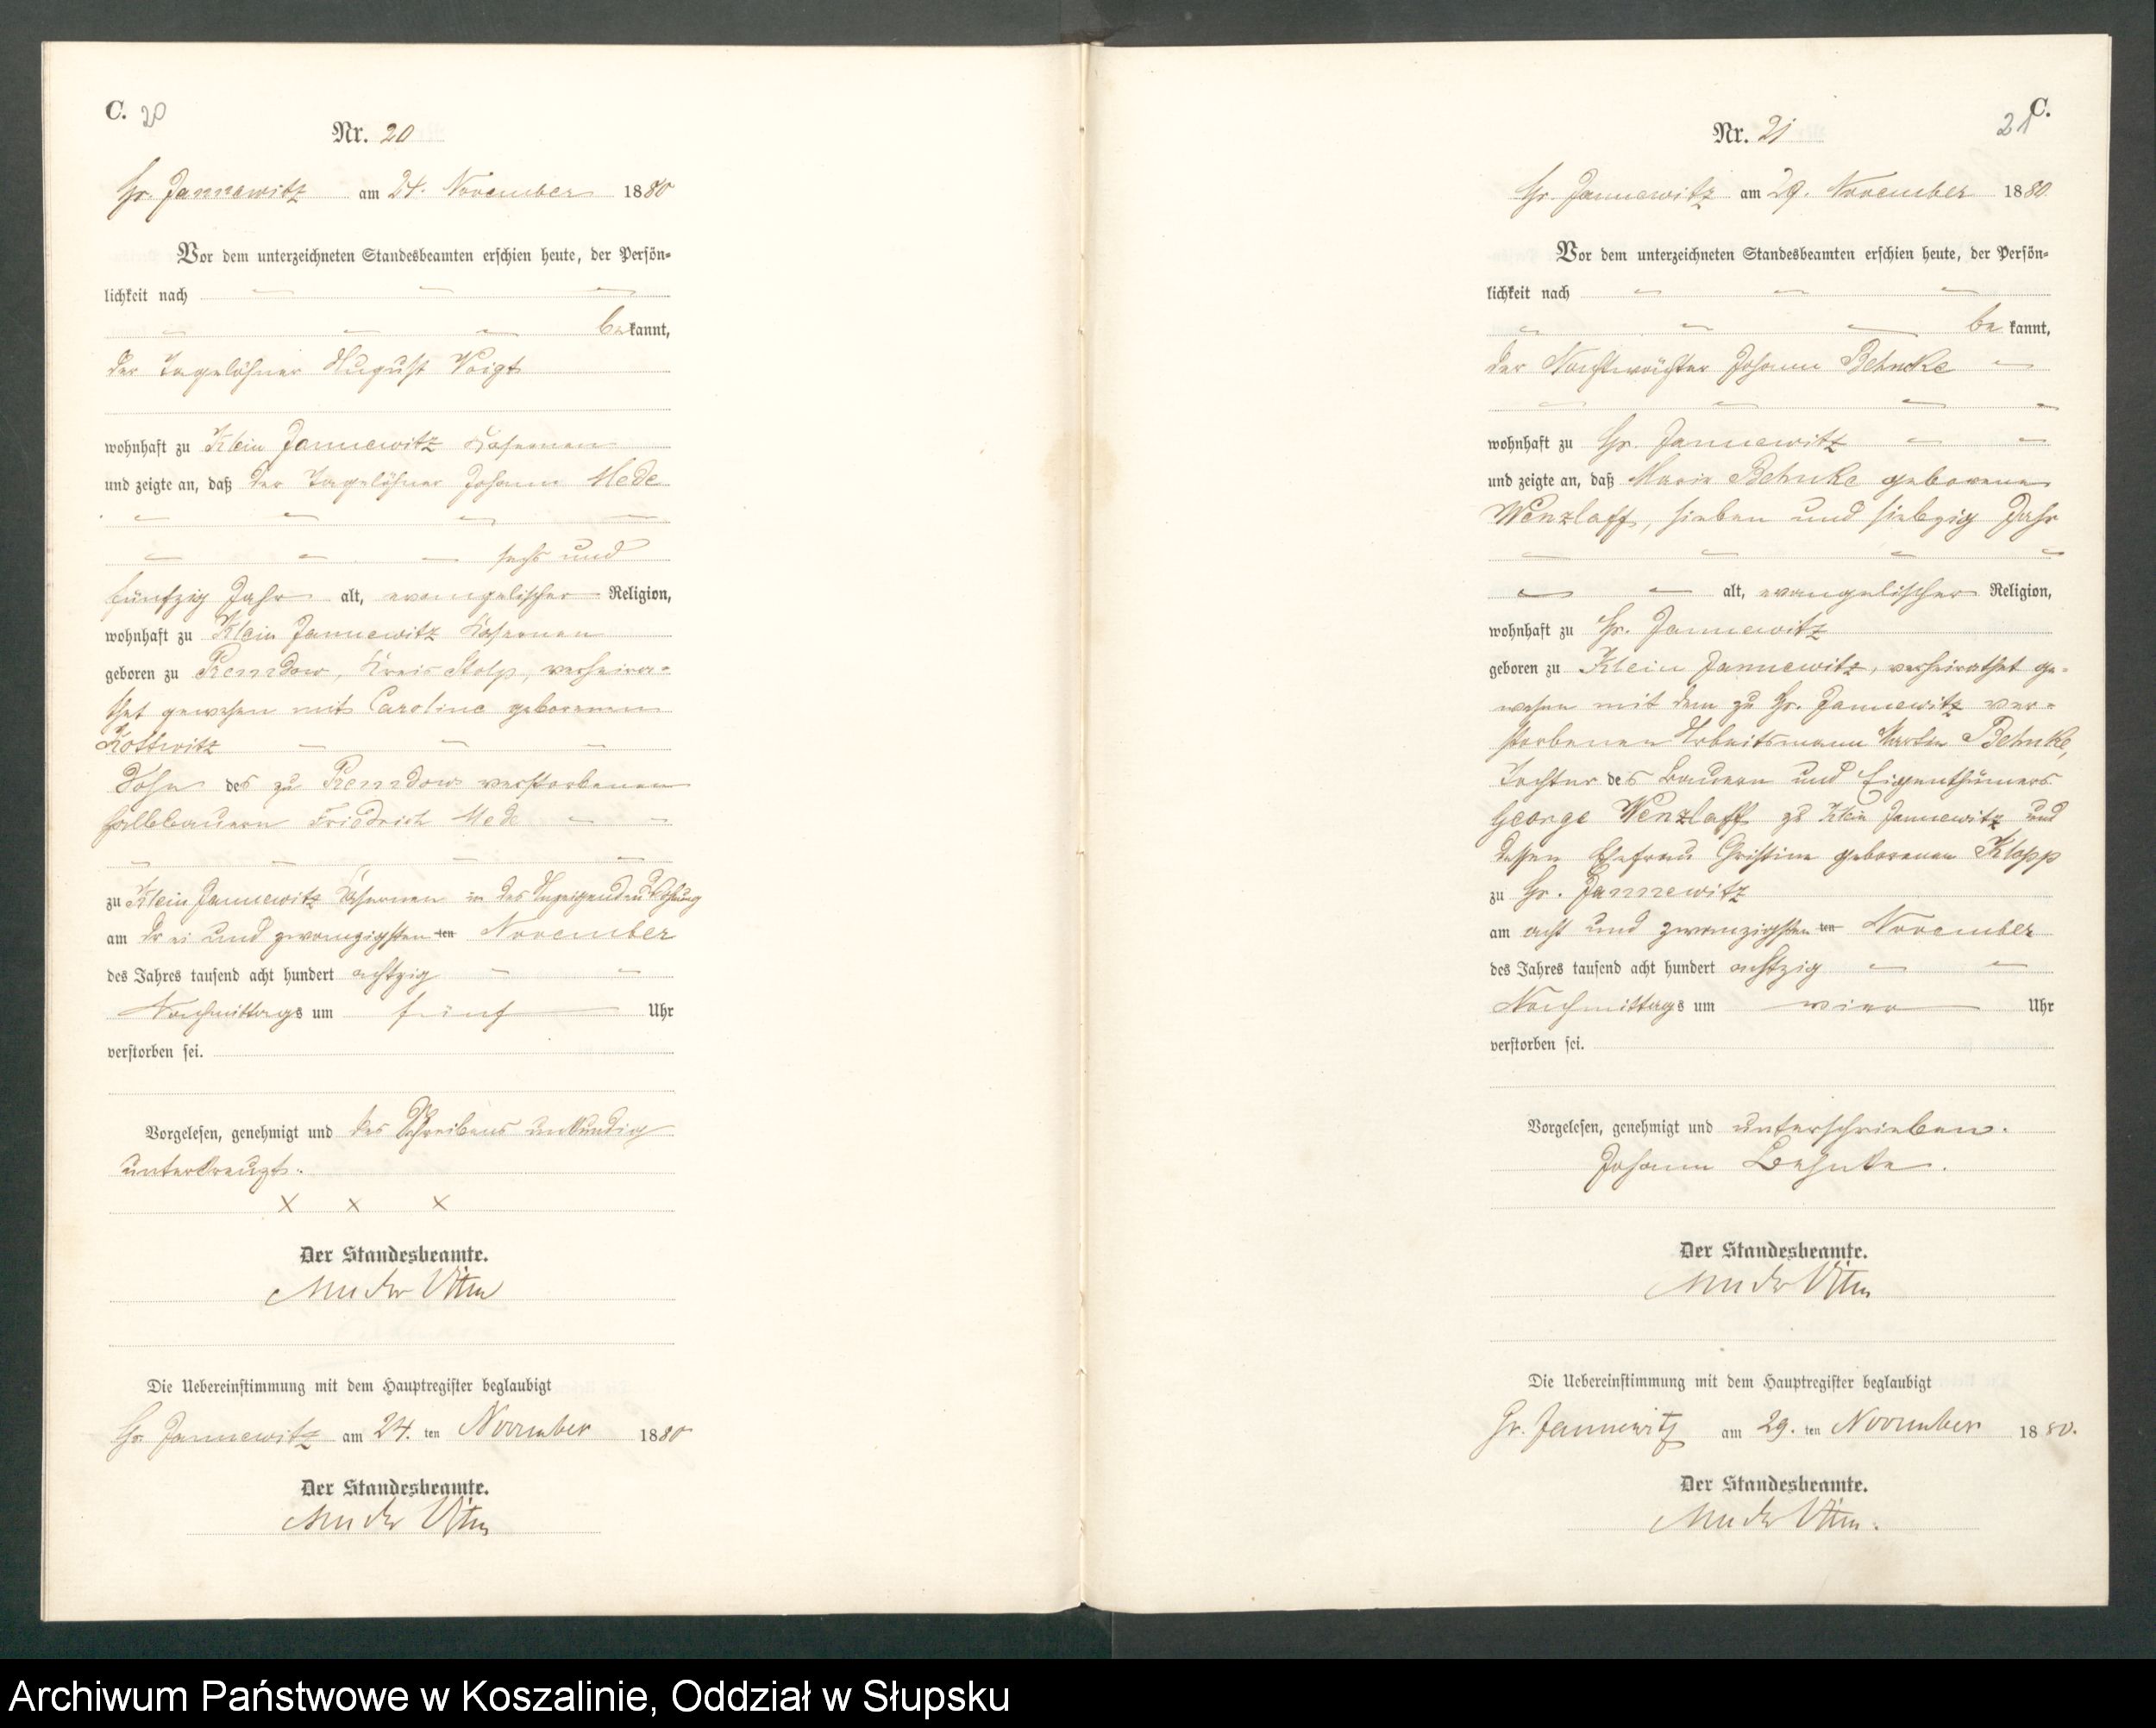 C. 20
Nr. 20
Gr. Jannewitz am 24. November 1880
Vor dem unterzeichneten Standesbeamten erschien heute, der Persön-
lichkeit nach
bekannt,
der Tagelöhner August Voigt
wohnhaft zu Klein Jannewitz Kasernen
und zeigte an, daß der Tagelöhner Johann Mede
sechs und
fünfzig Jahr alt, evangelischer Religion,
wohnhaft zu Klein Jannewitz Kasernen
geboren zu Rexndow, Kreis Stolp, verheira-
thet gewesen mit Caroline geborenen
Kottwitz
Sohn des zu verstorbenen
Halbbauern Friedrich Mede
zu Klein Jannewitz Kasernen in des Anzeigenden Wohnung
am drei und zwanzigsten ten November
des Jahres tausend acht hundert achtzig
Nachmittags um fünf Uhr
verstorben sei.
Vorgelesen, genehmigt und des Schreibens unkundig
unterkreuzt.
X X X
Der Standesbeamte.
Die Uebereinstimmung mit dem Hauptregister beglaubigt
Gr. Jannewitz am 24. ten November 1880
Der Standesbeamte.
C.
21
Nr. 21
Gr. Jannewitz am 29. November 1880
Vor dem unterzeichneten Standesbeamten erschien heute, der Persön-
lichkeit nach
be kannt,
der Nachtwächter Johann Behnke
wohnhaft zu Gr. Jannewitz
und zeigte an, daß Marie Behnke geborene
Wenzlaff, sieben und siebzig Jahr
alt, evangelischer Religion,
wohnhaft zu Gr. Jannewitz
geboren zu Klein Jannewitz, verheirathet ge-
wesen mit dem zu Gr. Jannewitz ver-
storbenen Arbeitsmann Martin Behnke,
Tochter des Bauern und Eigenthümers
George Wenzlaff zu Klein Jannewitz und
dessen Ehefrau Christine geborenen Klopp
zu Gr. Jannewitz
am acht und zwanzigsten ten November
des Jahres tausend acht hundert achtzig
Nachmittags um vier Uhr
verstorben sei.
Vorgelesen, genehmigt und unterschrieben.
Johann Behnke.
Der Standesbeamte.
Die Uebereinstimmung mit dem Hauptregister beglaubigt
Gr. Jannewitz am 29. ten November 1880.
Der Standesbeamte.
Archiwum Państwowe w Koszalinie, Oddział w Słupsku